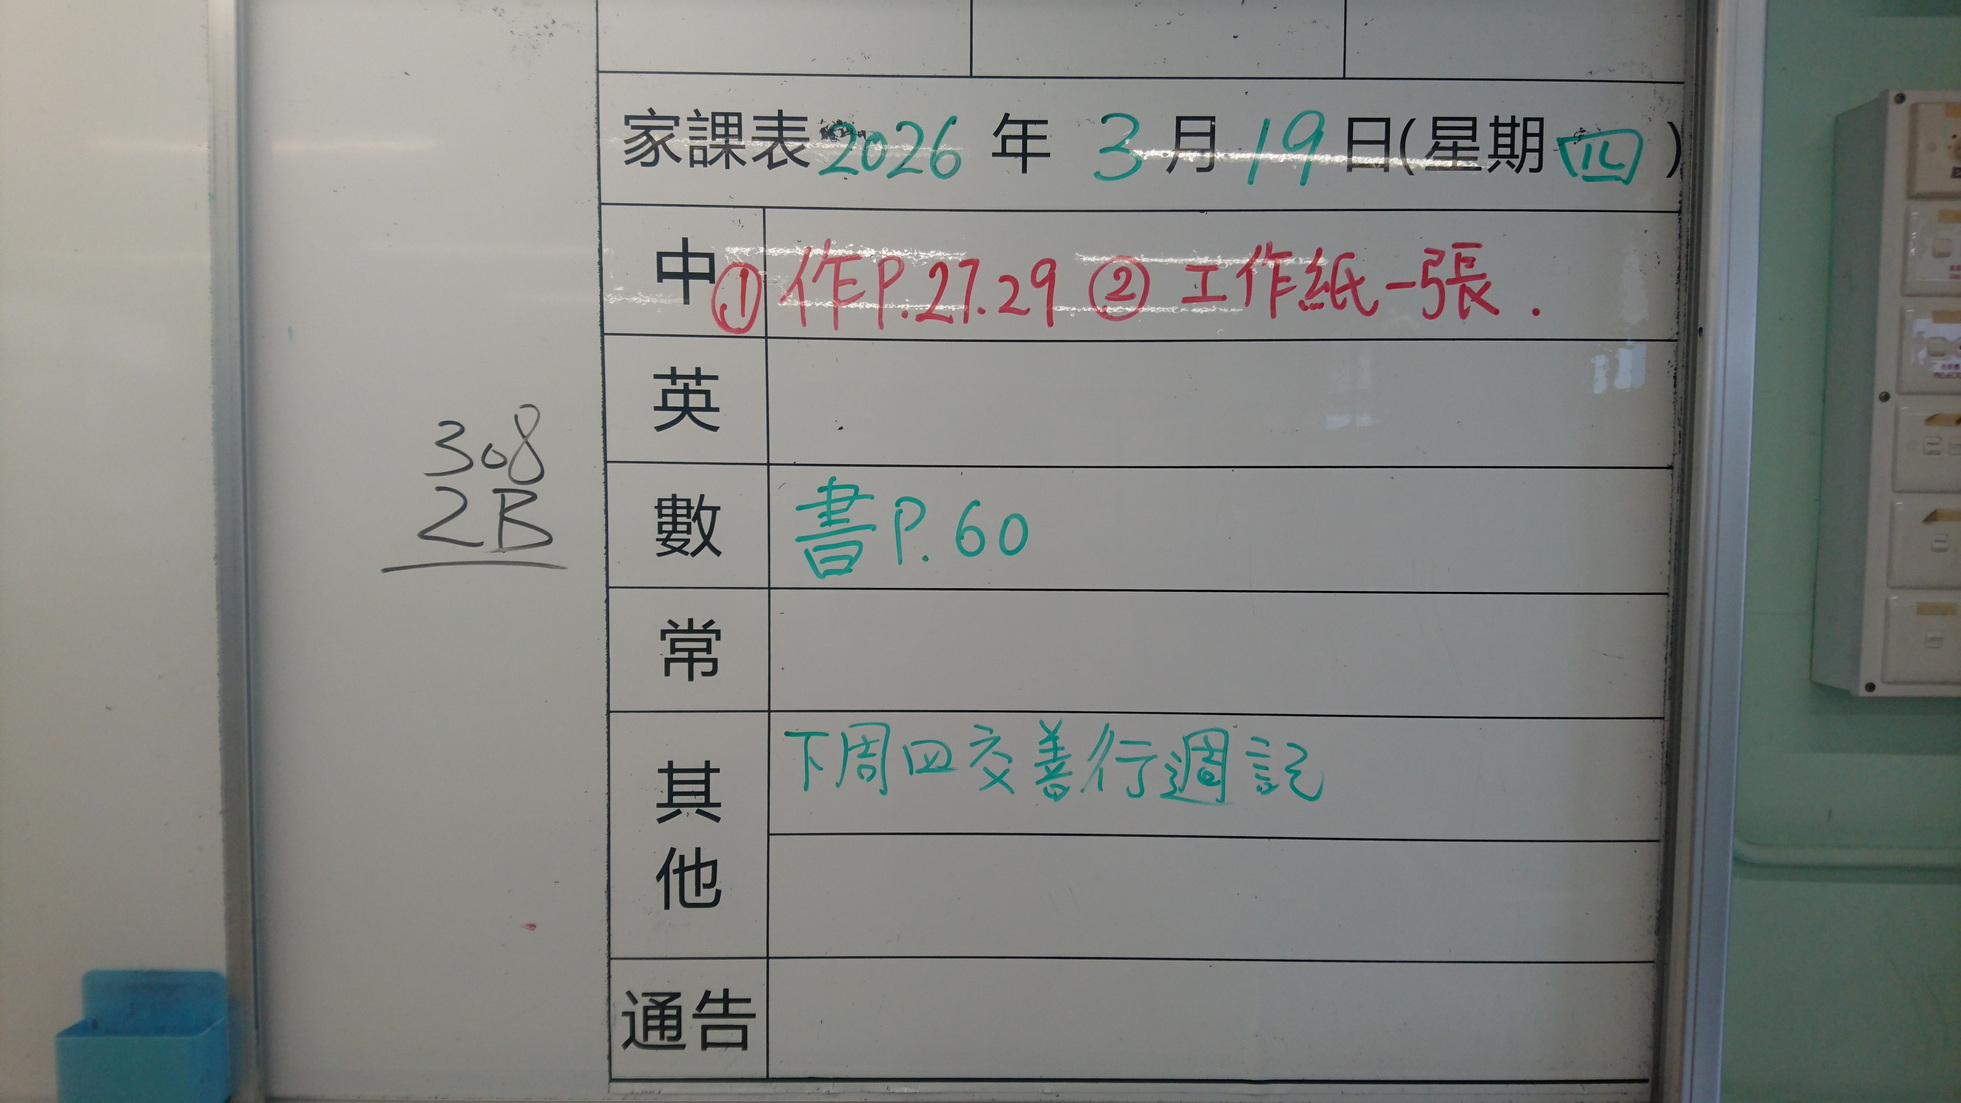 家課表 2026 年 3 月 19 日(星期 四 )
中 ① 作P.27.29 ② 工作紙一張.
英
308
2B
數 書P.60
常
其他 下周四交善行週記
通告